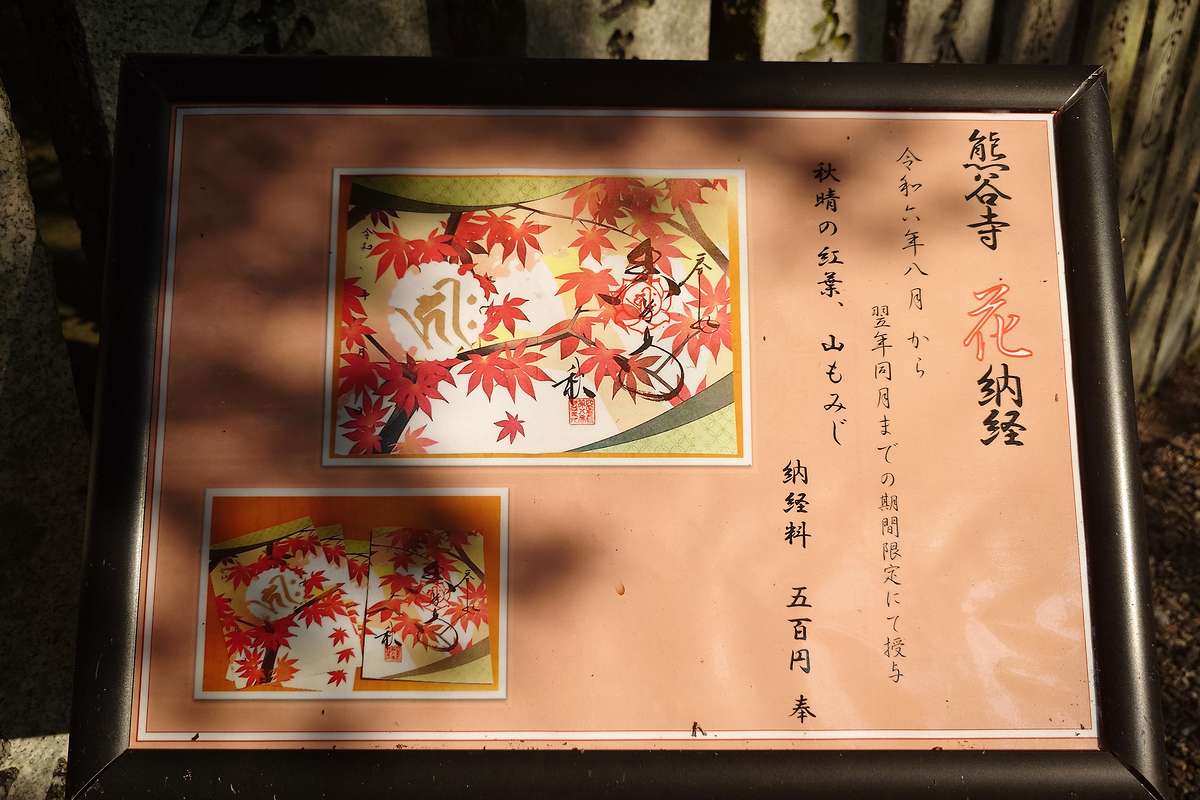 熊谷寺 花納経
令和六年八月から
翌年同月までの期間限定にて授与
秋晴の紅葉、山もみじ
納経料 五百円 奉
令和
秋